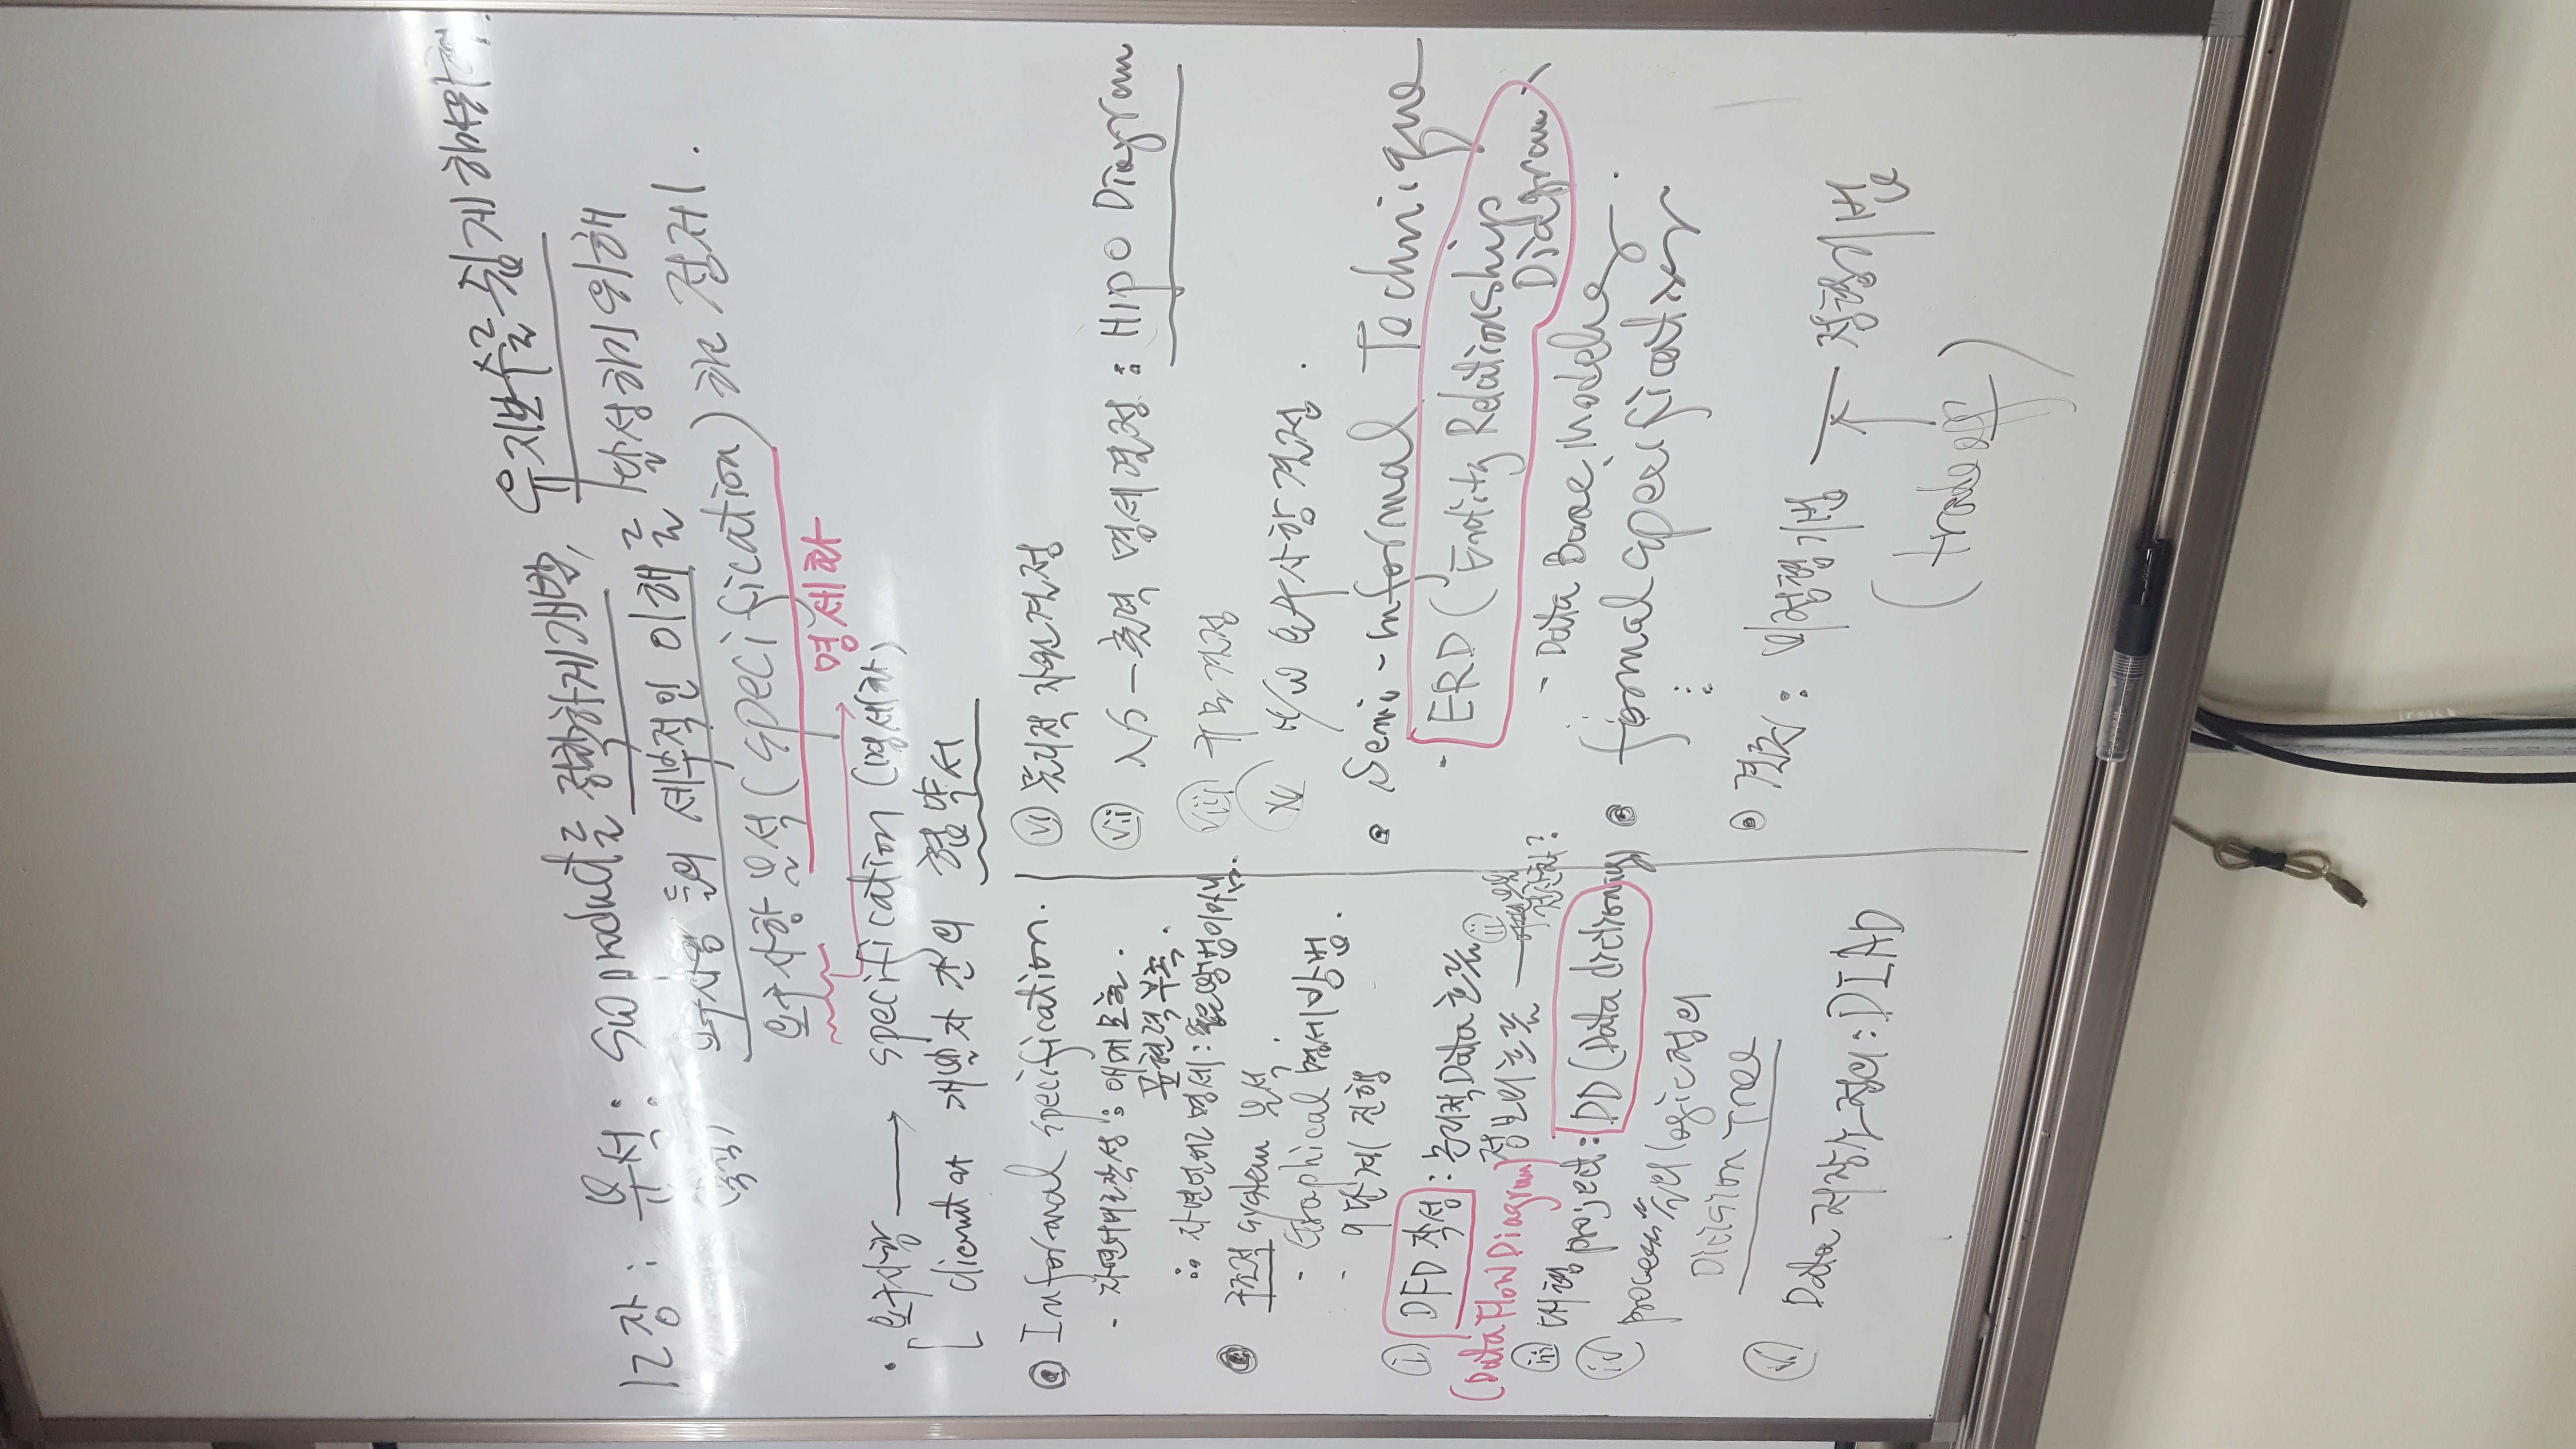 12장 : 분석 : SW product를 정확하게 개발, 유지보수를 쉽게 하기위해.
요구사항 들의 세부적인 이해를 달성하기 위해
요구사항 분석(specification)하는 절제.
명세화
· 요구사항 → specification (명세화)
client와 개발자 간의 협약서
Informal specification.
- 자연어로작성 : 애매모호.
표현력부족.
∴ 자연언어로 명세 : 좋은방법이아님.
구조적 system 분석.
- Graphical 명세방법.
- 9단계 진행
i) DFD 작성 : 논리적Data 흐름
(Data Flow Diagram) 정보의흐름 — ii) 전산화?
iii) 대형project : DD (Data dictionary)
iv) process들의 logic정의
Dicision Tree
v) Data 저장소정의 : DIAD
vi) 물리적 자원결정
vii) 입-출력 명세결정 : HIPO Diagram
viii) 규모결정
ix) H/W 요구사항결정.
Semi-informal Technique
- ERD (Entity Relationship
Diagram)
- Data Base Modeling.
formal specification
⋮
결론 : 비정형기법 — 정형기법
(trade off)